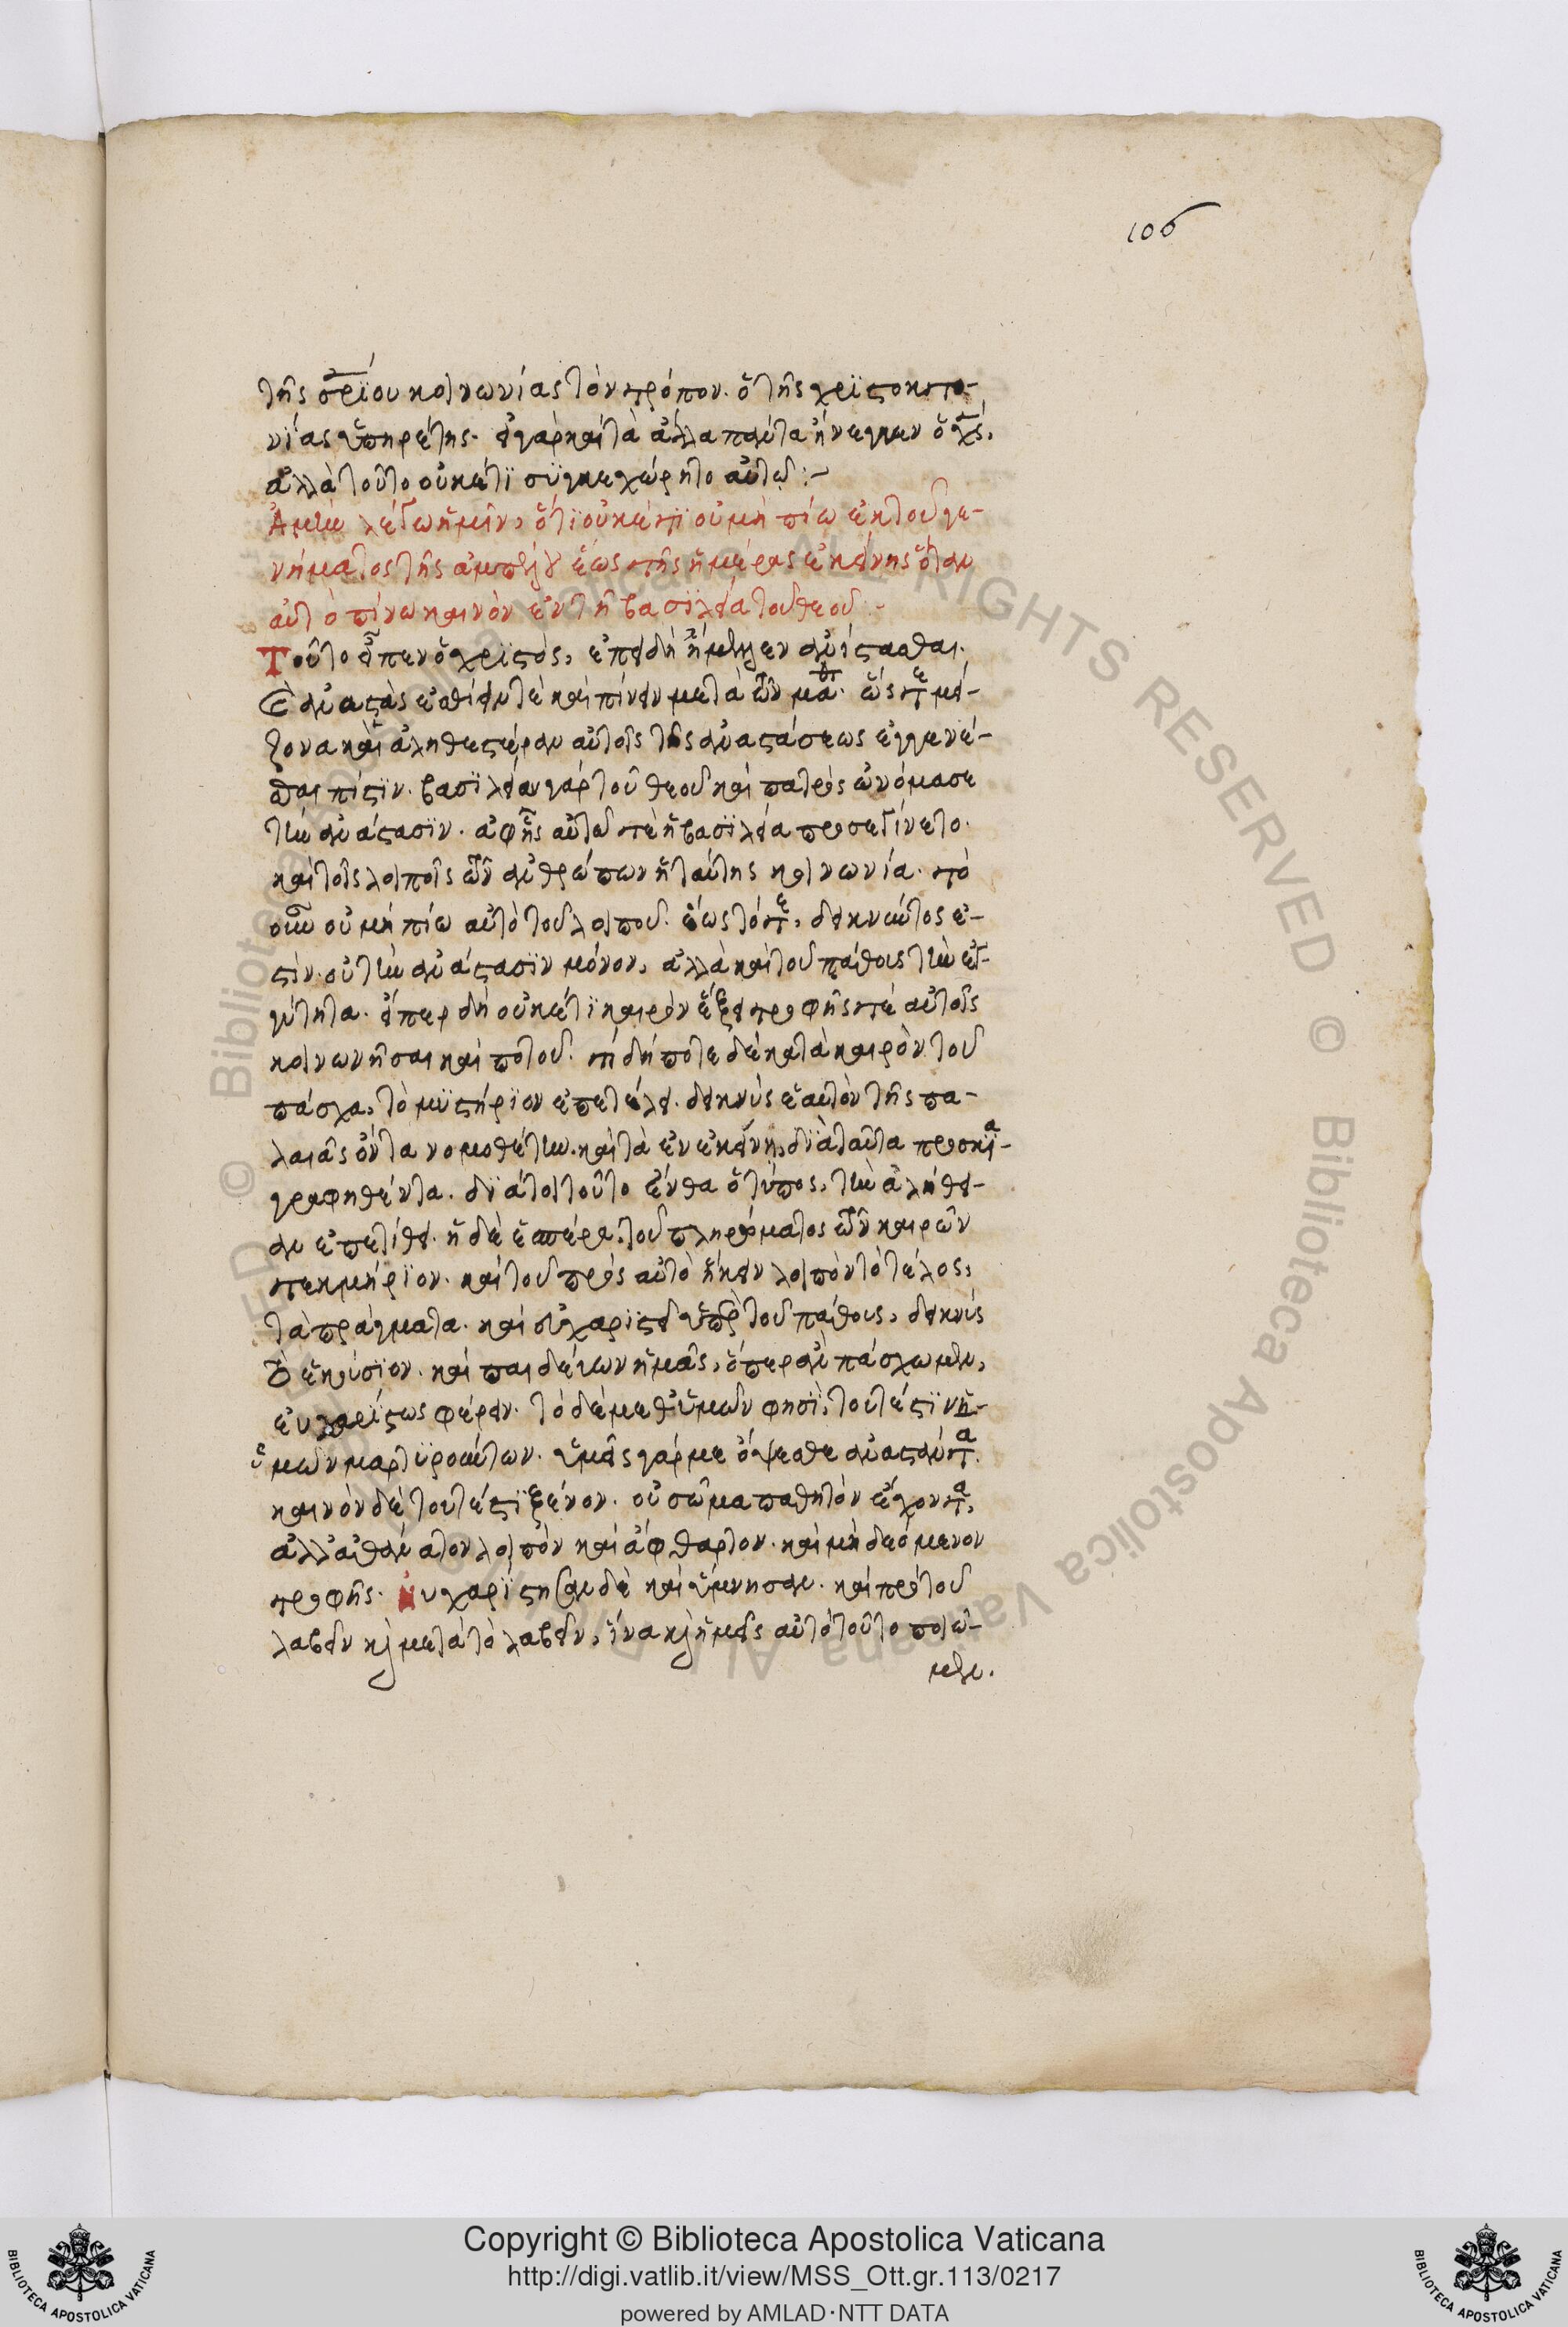 106
τῆς σρίου κοινωνίας τὸν τρόπον. ὁ τῆς χριστοκτο-
νίας ὑπηρέτης. εἰ γὰρ καὶ τὰ ἄλλα πάντα ἤνεγκεν ὁ χς,
ἀλλὰ τοῦτο οὐκέτι συγκεχώρητο αὐτῷ:-
Ἀμὴν λέγω ὑμῖν, ὅτι οὐκέτι οὐ μὴ πίω ἐκ τοῦ γε-
νήματος τῆς ἀμπέλου ἕως τῆς ἡμέρας ἐκείνης ὅταν
αὐτὸ πίνω καινὸν ἐν τῇ βασιλεία τοῦ θεοῦ:-
Τοῦτο εἶπεν ὁ χριστὸς, ἐπειδὴ ἤμελλεν ἀνίστασθαι.
ἀναστὰς ἐσθίειν τὲ καὶ πίνειν μετὰ τῶν μαθ. ὥστε μεί-
ζονα καὶ ἀληθεστέραν αὐτοῖς τῆς ἀναστάσεως ἐγγενέ-
σθαι πίστιν. βασιλείαν γὰρ τοῦ θεοῦ καὶ πατρὸς ὠνόμασε
τὴν ἀνάστασιν. ἀφ' ἧς αὐτῷ τὲ ἡ βασιλεία προσεγίνετο.
καὶ τοῖς λοιποῖς τῶν ἀνθρώπων ἡ ταύτης κοινωνία. τὸ
οὖν οὐ μὴ πίω αὐτὸ τοῦ λοιποῦ. ἕως τότε, δεικνύντος ἐ-
στὶν. οὐ τὴν ἀνάστασιν μόνον, ἀλλὰ καὶ τοῦ πάθους τὴν ἐγ-
γύτητα. ὅπερ δὴ οὐκέτι καιρὸν ἕξει τροφῆς τὲ αὐτοῖς
κοινωνῆσαι καὶ ποτοῦ. τί δήποτε δὲ κατὰ καιρὸν τοῦ
πάσχα, τὸ μυστήριον ἐπετέλει. δεικνὺς ἑαυτὸν τῆς πα-
λαιᾶς ὄντα νομοθέτην. καὶ τὰ ἐν ἐκείνῃ, διὰ ταῦτα προσκια-
γραφηθέντα. διάτοι τοῦτο ἔνθα ὁ τύπος, τὴν ἀλήθει-
αν ἐπετίθει. ἡ δὲ ἑσπέρα, τοῦ πληρώματος τῶν καιρῶν
τεκμήριον. καὶ τοῦ πρὸς αὐτὸ ἥκειν λοιπὸν τὸ τέλος,
τὰ πράγματα. καὶ εὐχαριστεῖ ὑπὲρ τοῦ πάθους, δεικνὺς
τὸ ἑκούσιον. καὶ παιδεύων ἡμᾶς, ὅπερ ἂν πάσχωμεν,
εὐχαρίστως φέρειν. τὸ δὲ μεθ' ὑμῶν φησὶ, τουτέστιν
ὑμῶν μαρτυρούντων. ὑμεῖς γάρ με ὄψεσθε ἀναστάντα.
καινὸν δὲ τουτέστι ξένον. οὐ σῶμα παθητὸν ἔχοντα,
ἀλλ' ἀθάνατον λοιπὸν καὶ ἄφθαρτον. καὶ μὴ δεόμενον
τροφῆς. ηὐχαρίστησαν δὲ καὶ ὕμνησαν. καὶ πρὸ τοῦ
λαβεῖν καὶ μετὰ τὸ λαβεῖν, ἵνα καὶ ἡμεῖς αὐτὸ τοῦτο ποιῶ-
μεν.
© Biblioteca Apostolica Vaticana ALL RIGHTS RESERVED
Copyright © Biblioteca Apostolica Vaticana
http://digi.vatlib.it/view/MSS_Ott.gr.113/0217
powered by AMLAD·NTT DATA
BIBLIOTECA APOSTOLICA VATICANA
BIBLIOTECA APOSTOLICA VATICANA